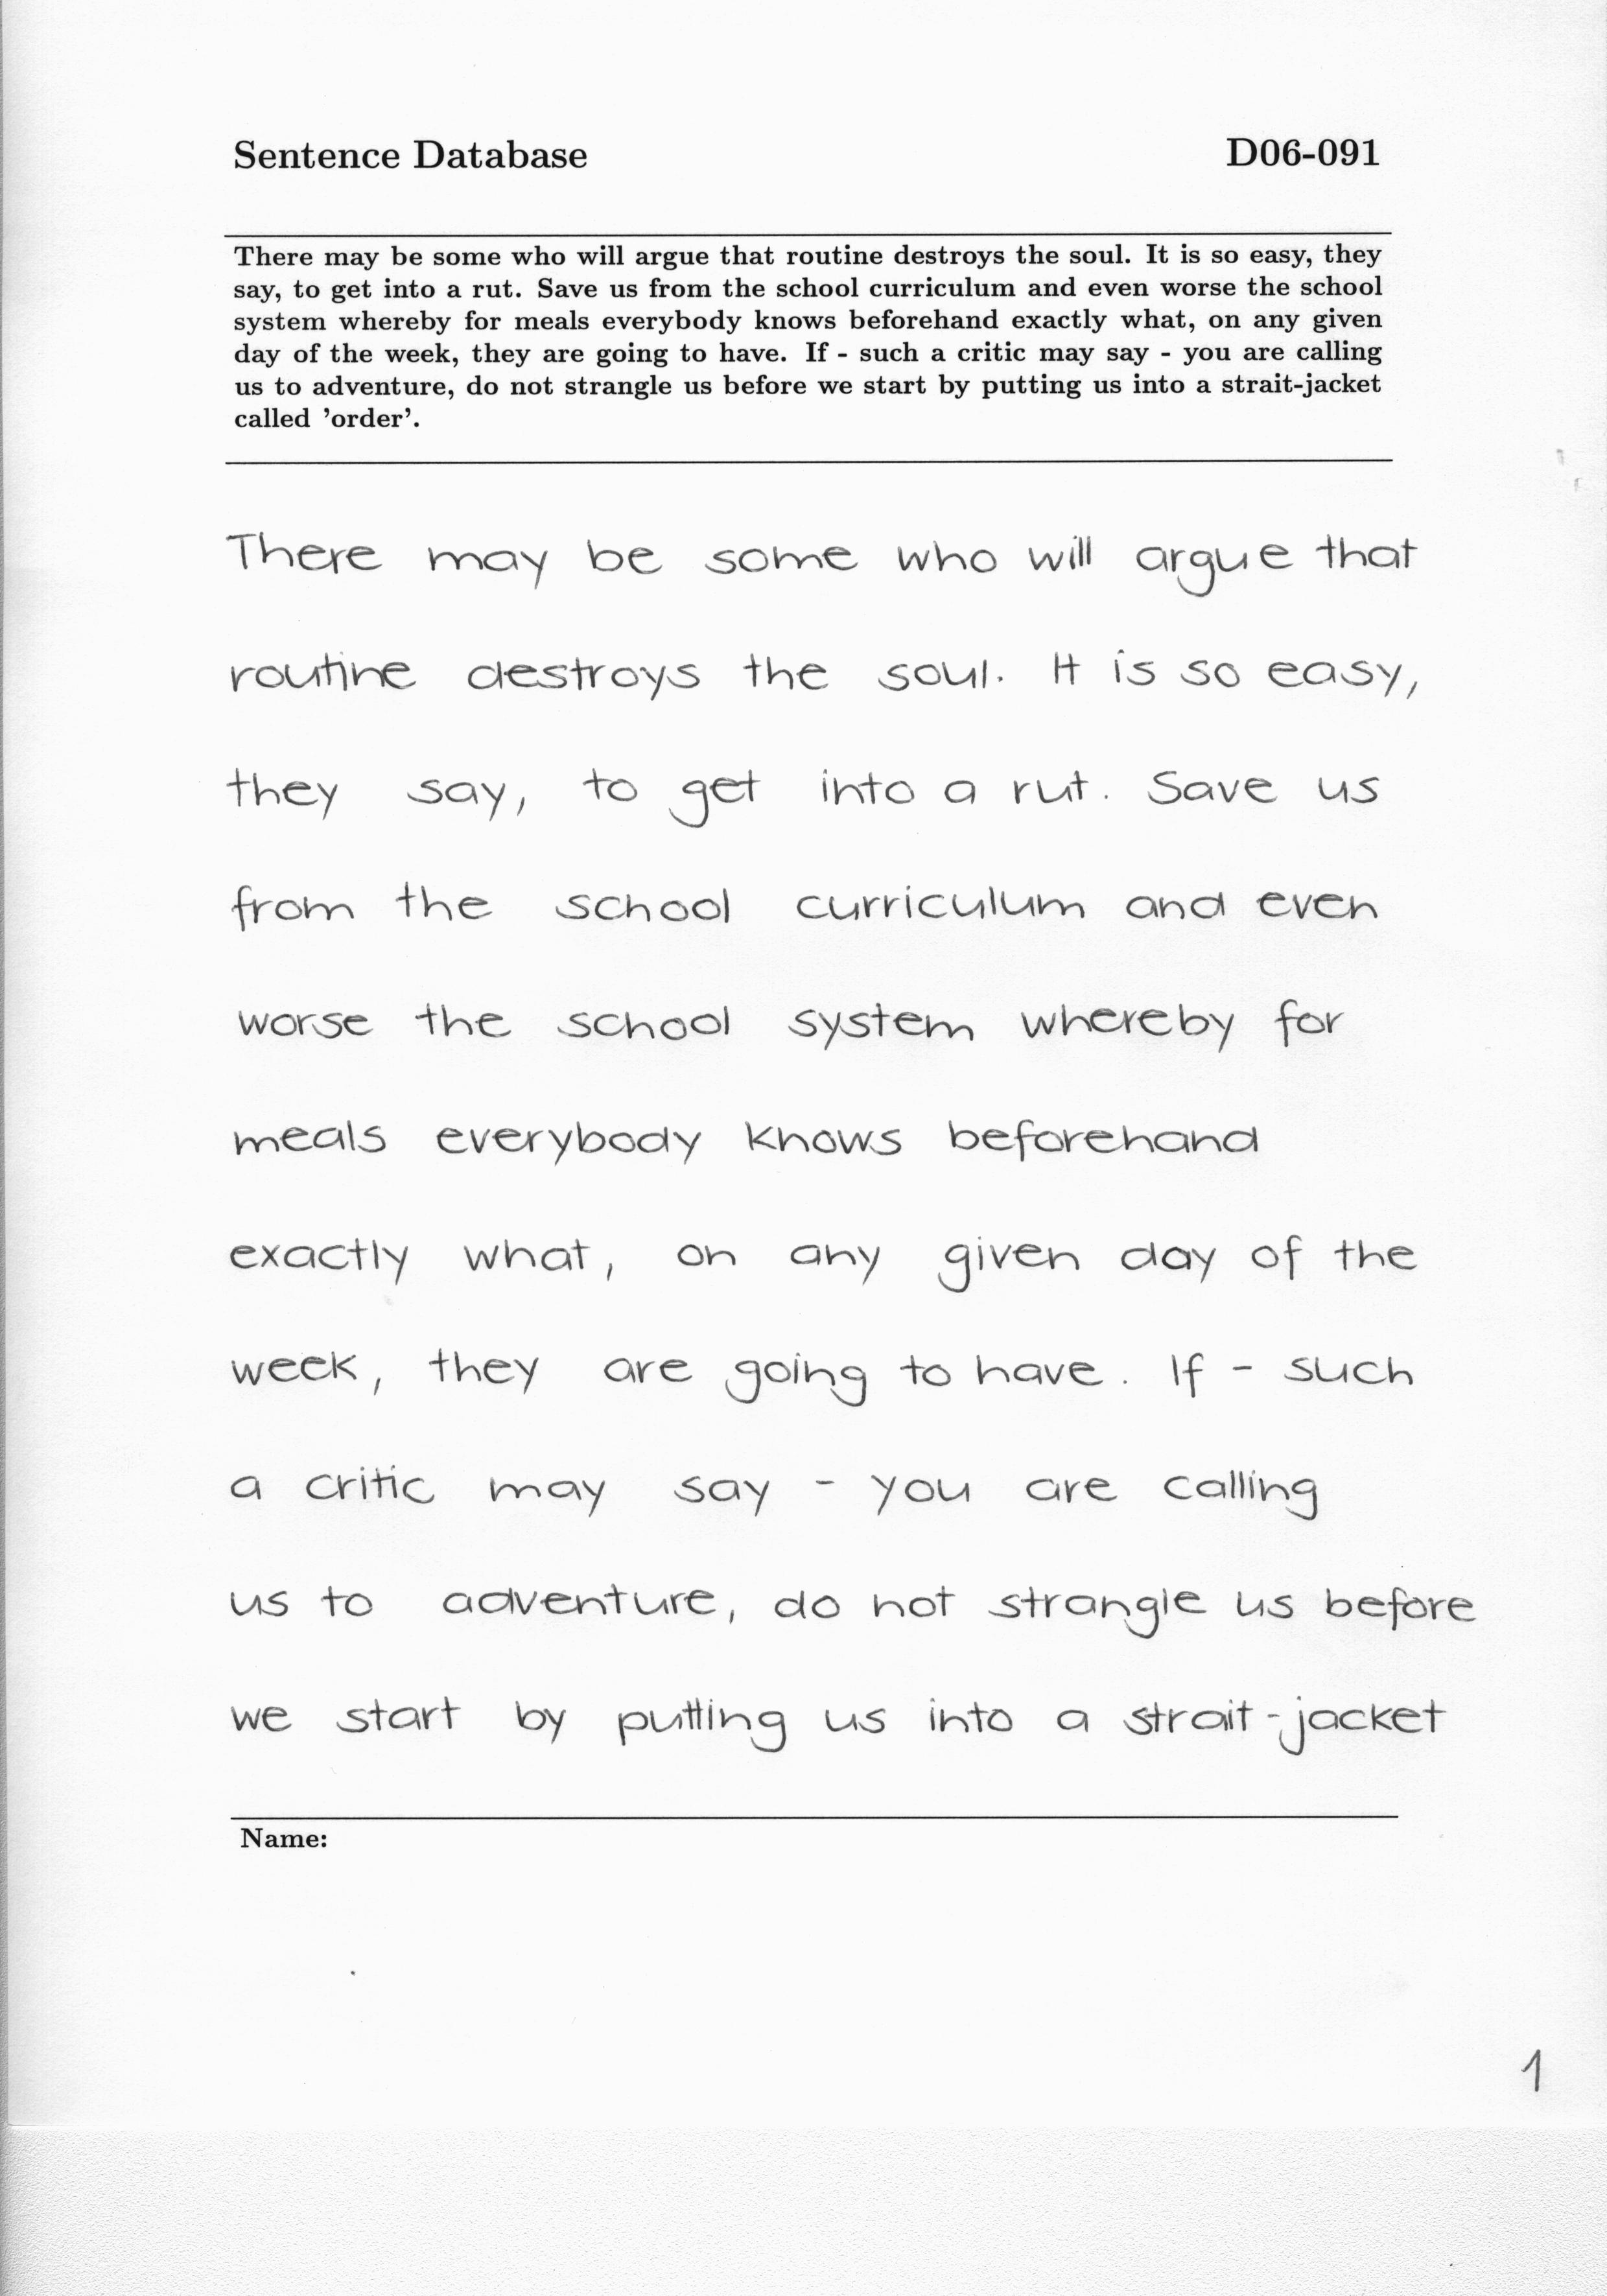 Sentence Database D06-091
There may be some who will argue that routine destroys the soul. It is so easy, they
say, to get into a rut. Save us from the school curriculum and even worse the school
system whereby for meals everybody knows beforehand exactly what, on any given
day of the week, they are going to have. If - such a critic may say - you are calling
us to adventure, do not strangle us before we start by putting us into a strait-jacket
called 'order'.
There may be some who will argue that
routine destroys the soul. It is so easy,
they say, to get into a rut. Save us
from the school curriculum and even
worse the school system whereby for
meals everybody knows beforehand
exactly what, on any given day of the
week, they are going to have. If - such
a critic may say - you are calling
us to adventure, do not strangle us before
we start by putting us into a strait-jacket
Name:
1